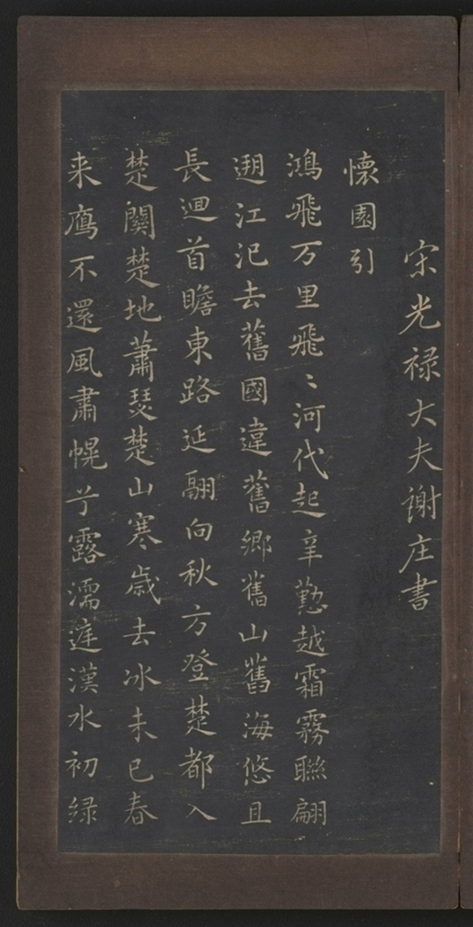 宋光禄大夫謝庄書
懷園引
鴻飛万里飛〻河代起辛懃越霜霧聯翩
遡江汜去舊國違舊鄉舊山舊海悠且
長迴首瞻東路延翮向秋方登楚都入
楚關楚地蕭瑟楚山寒歲去冰未已春
来鴈不還風肅幌兮露濡庭漢水初緑